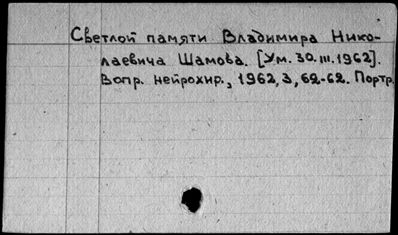 Светлой памяти Владимира Нико-
лаевича Шамова. [Ум. 30.III.1962].
Вопр. нейрохир., 1962, 3, 62-62. Портр.